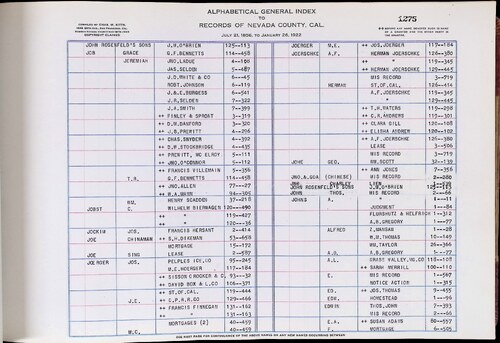 COMPILED BY CHAS. W. KITTS
COPYRIGHT CLAIMED
ALPHABETICAL GENERAL INDEX
TO
RECORDS OF NEVADA COUNTY, CAL.
JULY 21, 1856, TO JANUARY 26, 1922
1275
JOHN ROSENFELD'S SONS J.W.O'BRIEN 125—113
JOB GRACE G.F.BENNETTS 114—458
JEREMIAH JNO.LADUE 4—108
JAS.SELDON 5—487
J.D.WHITE & CO 6—45
ROBT.JOHNSON 6—119
J.& E.BURGESS 6—541
J.R.SELDEN 7—322
J.A.SMITH 7—399
++ FINDLEY & SPROAT 3—319
++ D.W.DANFORD 3—320
++ J.S.PREWITT 4—206
++ CHAS.SNYDER 4—392
++ D.W.STOCKBRIDGE 4—435
++ PREWITT, MC ELROY 5—111
++ JNO.O'CONNOR 5—112
++ FRANCIS VILLEMAIN 5—356
T.R. G.F.BENNETTS 114—458
++ JNO.ALLER 77—27
++ R.A.WARR 94—305
WM. HENRY SCADDEN 37—218
JOBST C. WILHELM BIERWAGEN 120—490
++ " 119—627
++ " 120—36
JOCKIN JOS. FRANCIS HERSANT 2—414
JOE CHINAMAN ++ S.H.DIKEMAN 53—658
MORTGAGE 15—172
JOE SING LEASE 2—587
JOERGER JOS. PEOPLES ICE,CO 95—245
M.E.HOERGER 117—184
++ SISSON CROCKER & CO. 93—32
++ DAVID BOX & L.CO. 106—371
++ ST.OF,CAL. 129—444
J.E. ++ C.P.R.R.CO 129—466
++ FRANCIS FINNEGAN 131—162
++ " 131—162
MORTGAGES (2) 40—459
M.E. " 40—459
JOERGER M.E. ++ JOS.JOERGER 117—184
JOERSCHKE A.F. HERMAN JOERSCHKE 119—380
++ " 119—380
++ HERMAN JOERSCHKE 129—445
MIS RECORD 3—719
HERMAN ST.OF,CAL. 126—416
A.F.JOERSCHKE 119—345
" 129—445
++ T.H.WATERS 119—258
++ G.R.ANDREWS 113—301
++ CLARA GILL 120—108
++ ELISHA ANDREW 120—102
++ A.F.JOERSCHKE 126—380
LEASE 3—506
MIS RECORD 3—719
JOHE GEO. WM.SCOTT 32—139
++ ANN JONES 7—356
JNO.& QUA. (CHINESE) MIS RECORD 2—280
JOHN ROSENFELD'S SONS J.W.O'BRIEN 125—113
JOHN THOS. MIS RECORD 2—66
JOHNS A. ++ " 1—11
JUDGMENT 1—84
FLUHSUTZ & HELFRICH 1—312
A.B.GREGORY 1—77
ALFRED Z.MAUSAN 1—28
WM.THOMAS 10—149
WM.TAYLOR 26—366
A.B. A.B.GREGORY 1—77
A.L. GRASS VALLEY,MG.CO 116—108
++ SARAH MERRILL 100—110
E. MIS RECORD 1—587
NOTICE ACTION 1—315
ED. ++ JOS.THOMAS 9—455
EDW. HOMESTEAD 1—96
EDWIN THOS.JOHN 7—393
MIS RECORD 2—66
E.A. ++ SUSAN ADAMS 80—557
F. MORTGAGE 6—505